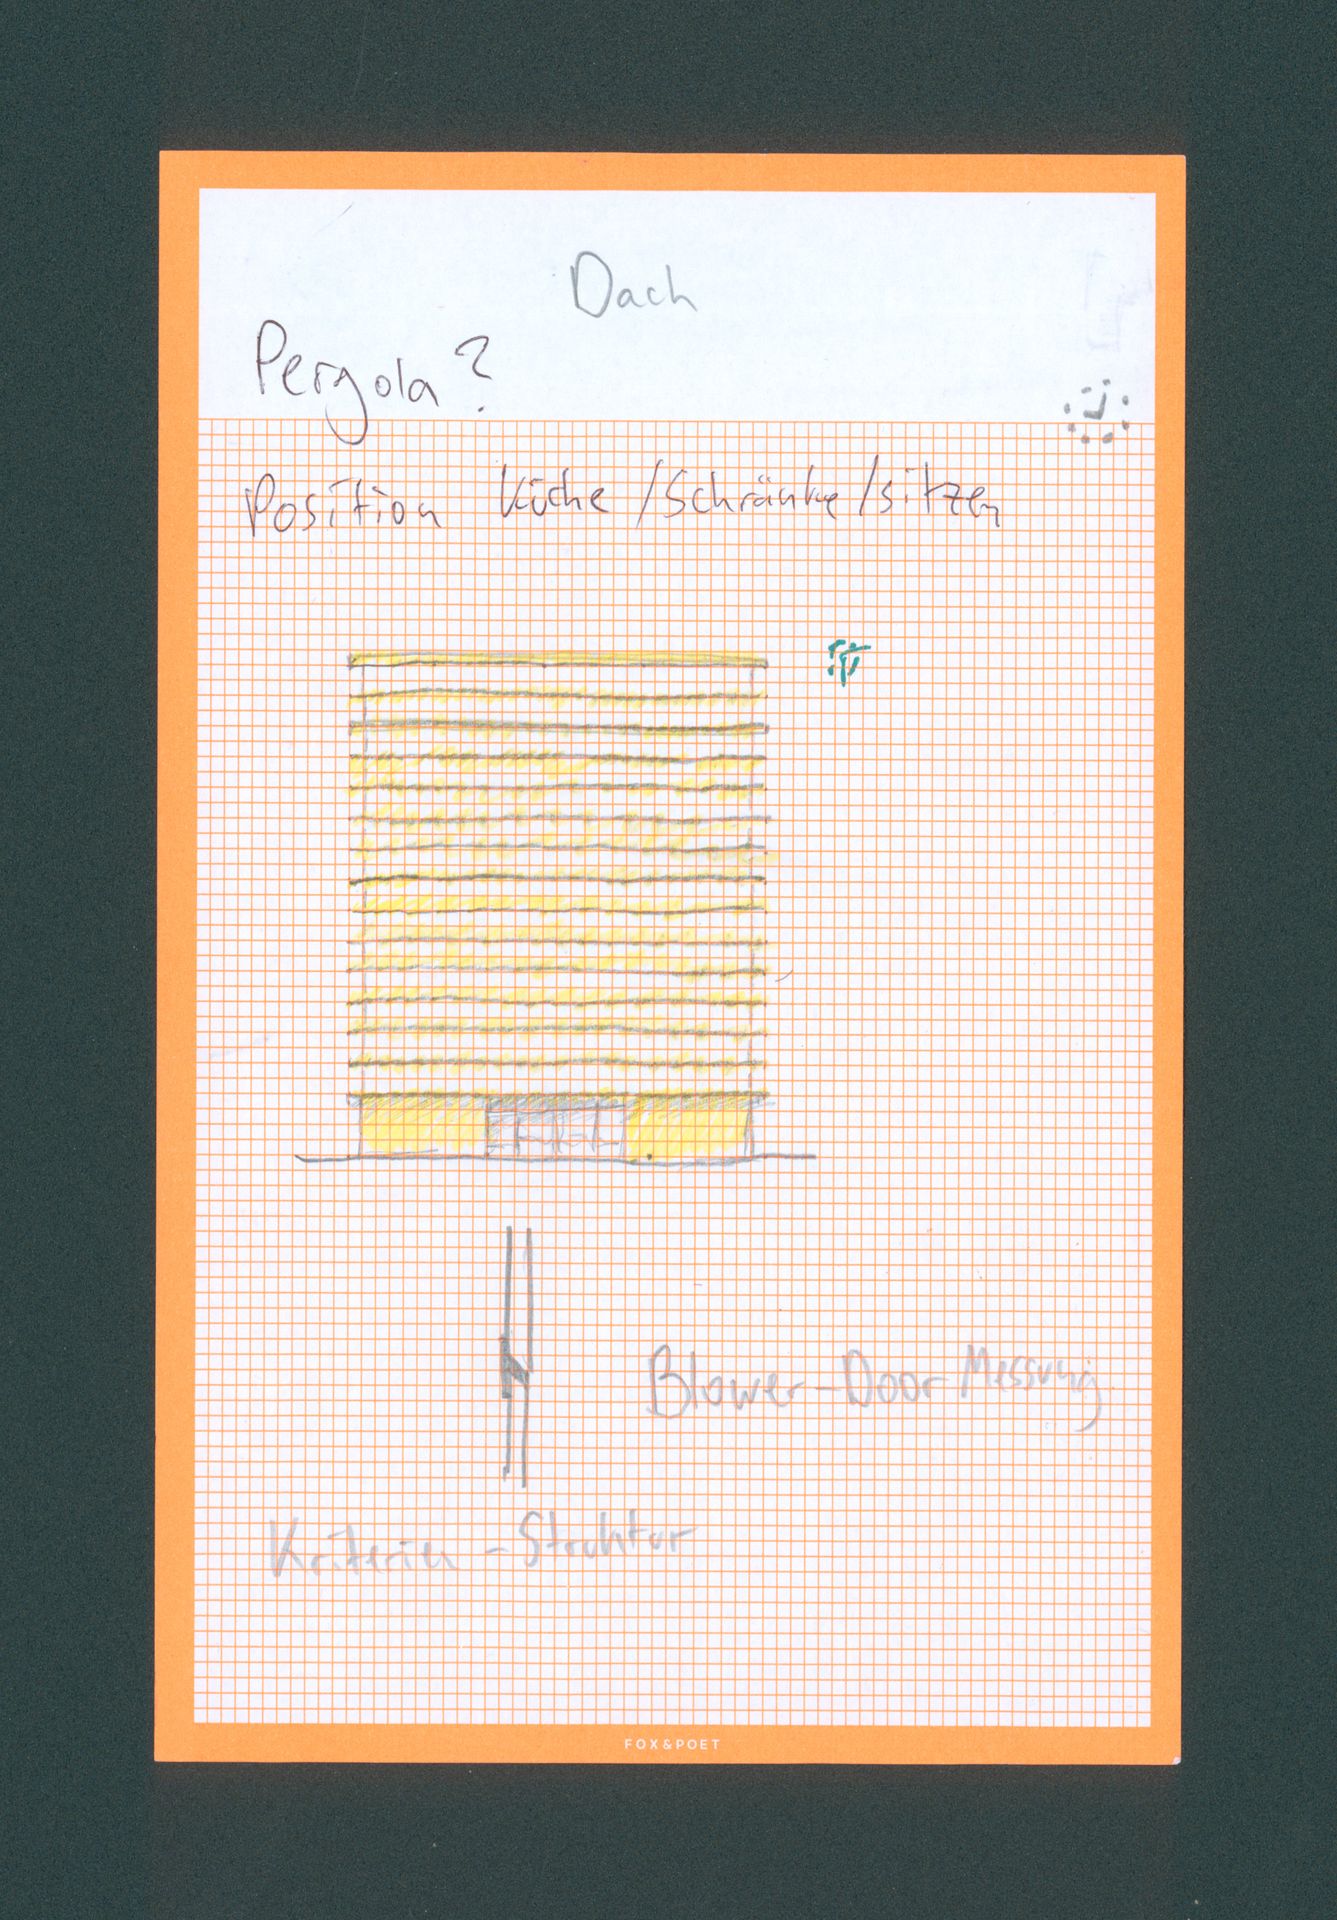 Dach
Pergola?
Position Küche/Schränke/sitzen
Blower-Door Messung
Kriterien-Struktur
FOX&POET